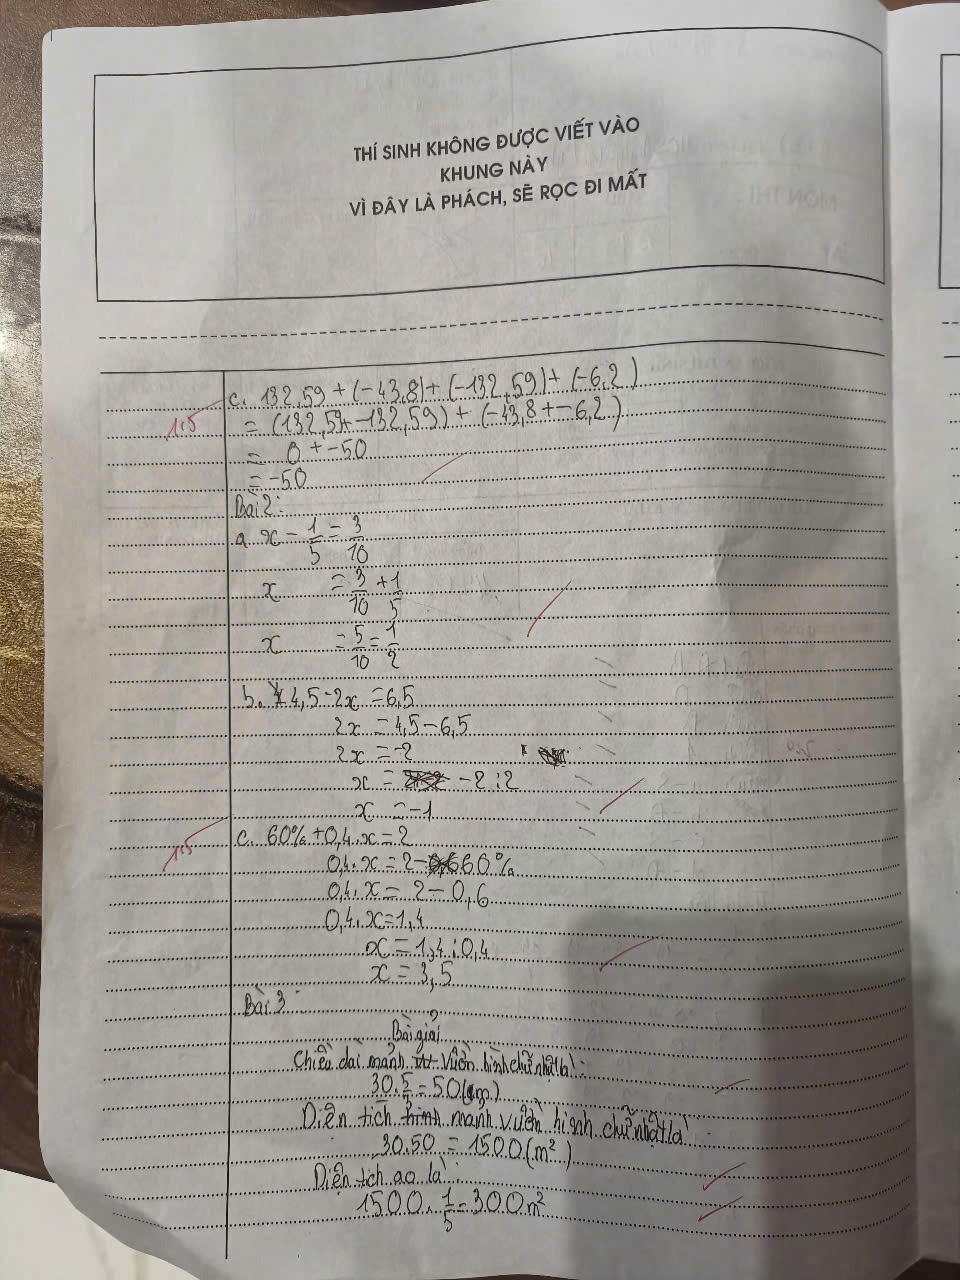 THÍ SINH KHÔNG ĐƯỢC VIẾT VÀO
KHUNG NÀY
VÌ ĐÂY LÀ PHÁCH, SẼ RỌC ĐI MẤT
c. 132,59 + (-43,8) + (-132,59) + (-6,2)
1.5
= (132,59 + -132,59) + (-43,8 + -6,2)
= 0 + -50
= -50
Bài 2:
a. x - 1/5 = 3/10
x = 3/10 + 1/5
x = 5/10 = 1/2
b. 4,5 - 2x = 6,5
2x = 4,5 - 6,5
2x = -2
x = -2 : 2
x = -1
c. 60% + 0,4.x = 2
1.5
0,4.x = 2 - 60%
0,4.x = 2 - 0,6
0,4.x = 1,4
x = 1,4 : 0,4
x = 3,5
Bài 3:
Bài giải
Chiều dài mảnh vườn hình chữ nhật là:
30.5/3 = 50(m)
Diện tích mảnh vườn hình chữ nhật là
30.50 = 1500(m²)
Diện tích ao là:
1500.1/5 = 300m²